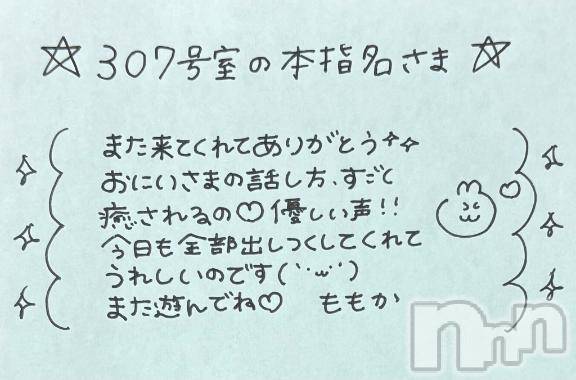 ☆307号室の本指名さま☆
また来てくれてありがとう✧✧
おにいさまの話し方、すごく
癒されるの♡優しい声!!
今日も全部出しつくしてくれて
うれしいのです(`･ω･´)
また遊んでね♡　ももか
nnn